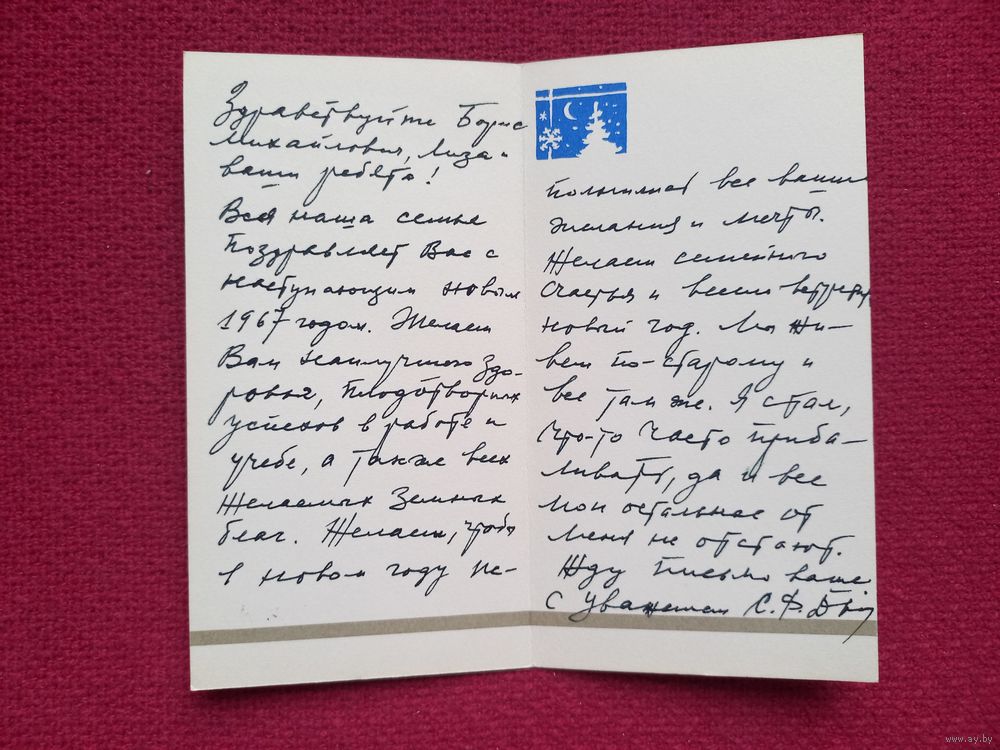 Здравствуйте Борис
Михайлович, Лиза и
ваши ребята!
Вся наша семья
поздравляет Вас с
наступающим новым
1967 годом. Желаем
Вам наилучшего здо-
ровья, плодотворных
успехов в работе и
учебе, а также всех
желаемых земных
благ. Желаем, чтобы
в новом году ис-
полнились все ваши
желания и мечты.
Желаем семейного
счастья и весело встретить
новый год. Мы жи-
вем по-старому и
все там же. Я стал,
что-то часто приба-
ливать, да и все
мои остальные от
меня не отстают.
Жду письмо ваше
С уважением С. Ф.
www.ay.by